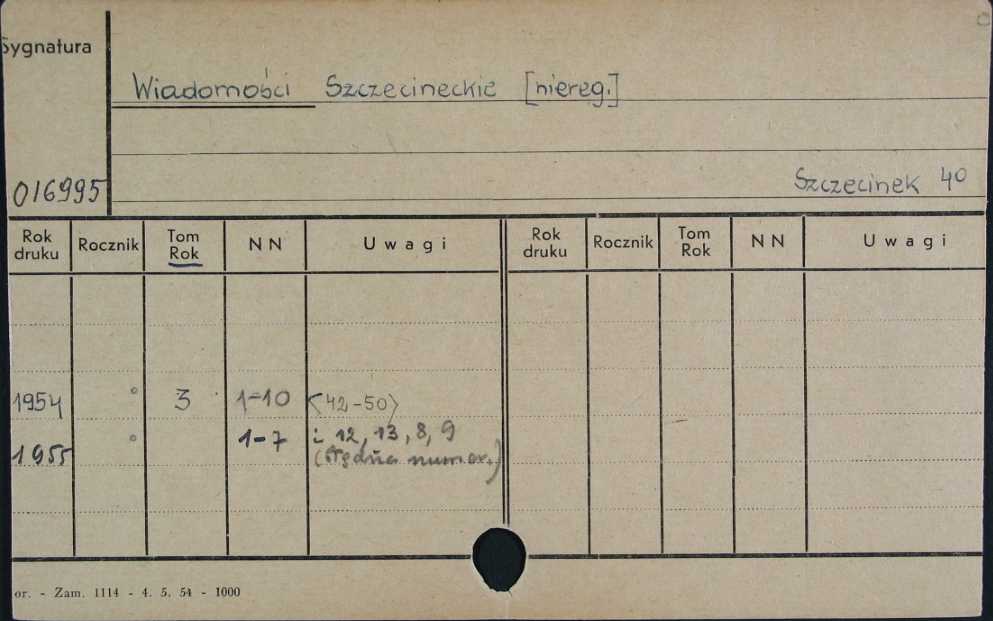 Sygnatura
Wiadomości Szczecineckie [niereg.]
016995
Szczecinek 40
Rok druku Rocznik Tom Rok N N U w a g i Rok druku Rocznik Tom Rok N N U w a g i
1954 3 1-10 <42-50>
1955 1-7 i 12, 13, 8, 9
(błędna numer.)
or. - Zam. 1114 - 4. 5. 54 - 1000